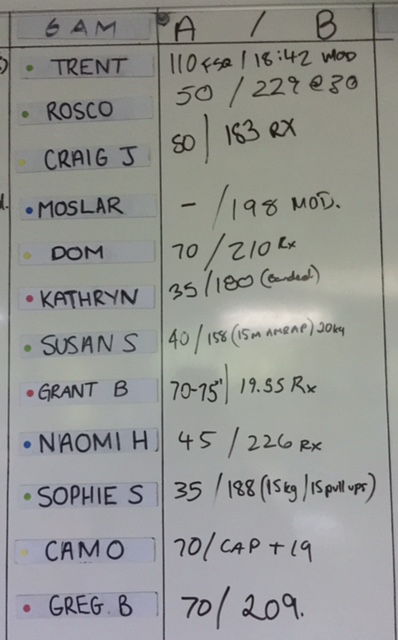 6 AM A / B
TRENT 110 FSQ / 18:42 MOD
ROSCO 50 / 229 @ 30
CRAIG J 80 / 183 RX
MOSLAR - / 198 MOD.
DOM 70 / 210 Rx
KATHRYN 35 / 180 (Banded)
SUSAN S 40 / 158 (15M AMRAP) 20kg
GRANT B 70-75' / 19.55 Rx
NAOMI H 45 / 226 RX
SOPHIE S 35 / 188 (15kg / 15 pull ups)
CAMO 70 / CAP + 19
GREG. B 70 / 209.